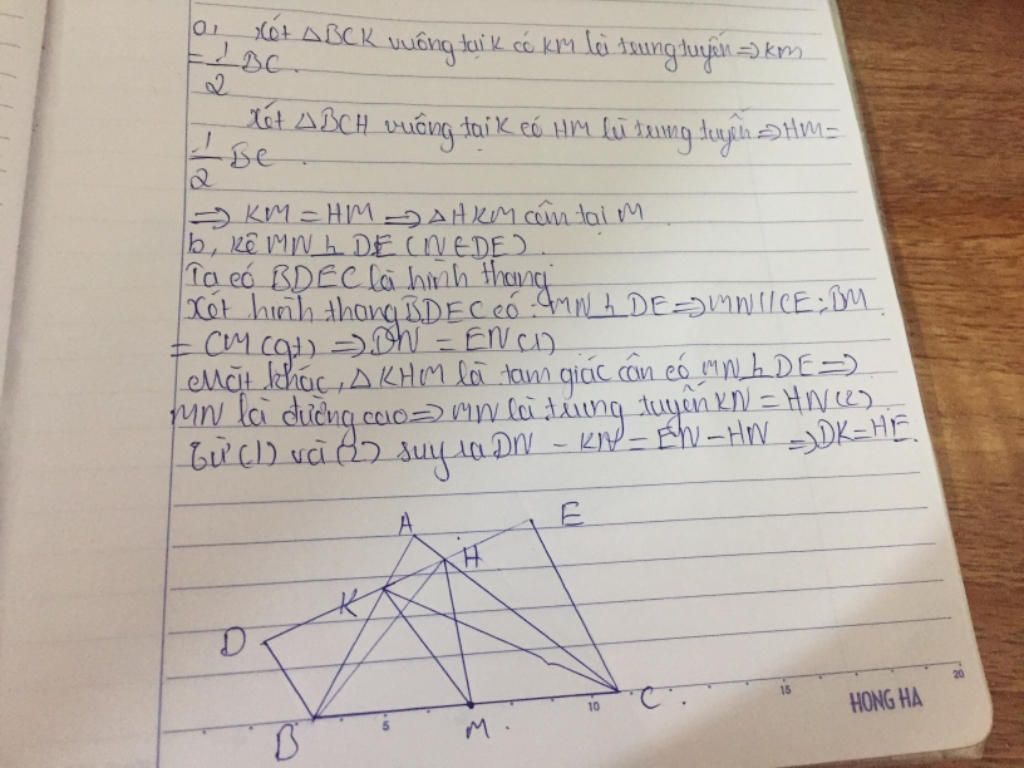 a, Xét △BCK vuông tại K có KM là trung tuyến ⇒ KM
= 1/2 BC.
Xét △BCH vuông tại K có HM là trung tuyến ⇒ HM =
1/2 BC.
⇒ KM = HM ⇒ △HKM cân tại M
b, Kẻ MN ⊥ DE (N ∈ DE).
Ta có BDEC là hình thang
Xét hình thang BDEC có: MN ⊥ DE ⇒ MN // CE; BM
= CM (gt) ⇒ DN = EN (1)
Mặt khác, △KHM là tam giác cân có MN ⊥ DE ⇒
MN là đường cao ⇒ MN là trung tuyến KN = HN (2)
Từ (1) và (2) suy ra DN - KN = EN - HN ⇒ DK = HE.
A
E
H
K
D
B
M
C
5
10
15
20
HONG HA